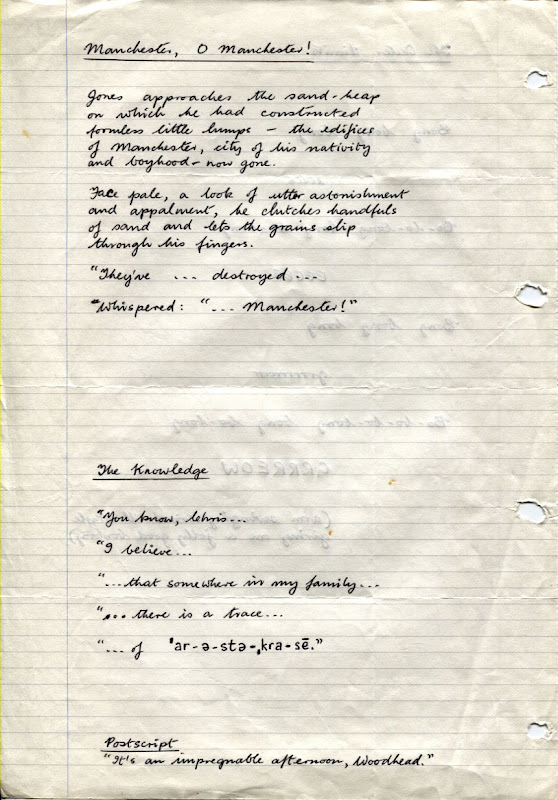 Manchester, O Manchester!
Jones approaches the sand-heap
on which he had constructed
formless little lumps – the edifices
of Manchester, city of his nativity
and boyhood – now gone.
Face pale, a look of utter astonishment
and appalment, he clutches handfuls
of sand and lets the grains slip
through his fingers.
"They've ... destroyed ...
"Whispered: "... Manchester!"
The Knowledge
"You know, Chris...
"I believe...
"...that somewhere in my family...
"... there is a trace...
"... of ˈar-ə-stə-ˌkra-sē."
Postscript
"It's an impregnable afternoon, Woodhead."